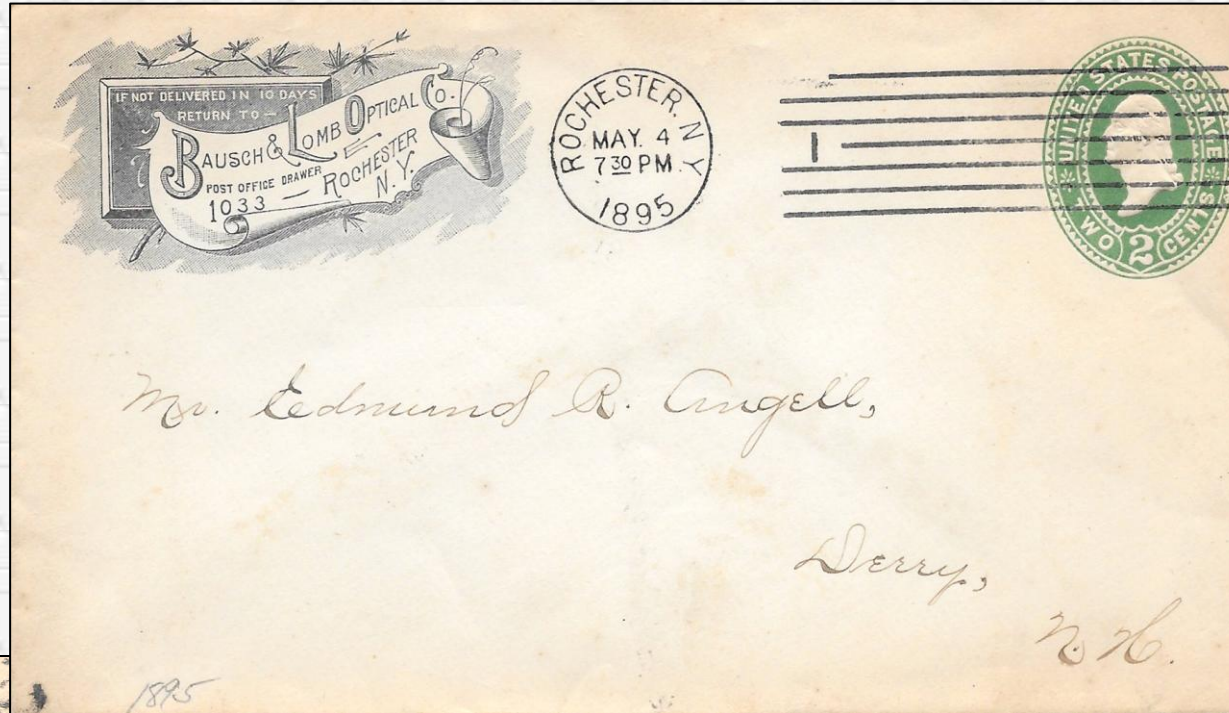 IF NOT DELIVERED IN 10 DAYS
RETURN TO —
BAUSCH & LOMB OPTICAL CO.
POST OFFICE DRAWER
1033 — ROCHESTER
N.Y.
ROCHESTER. N.Y.
MAY. 4
7 30 PM
1895
1
UNITED STATES POSTAGE
TWO 2 CENTS
Mr. Edmund R. Angell,
Derry,
N. H.
1895